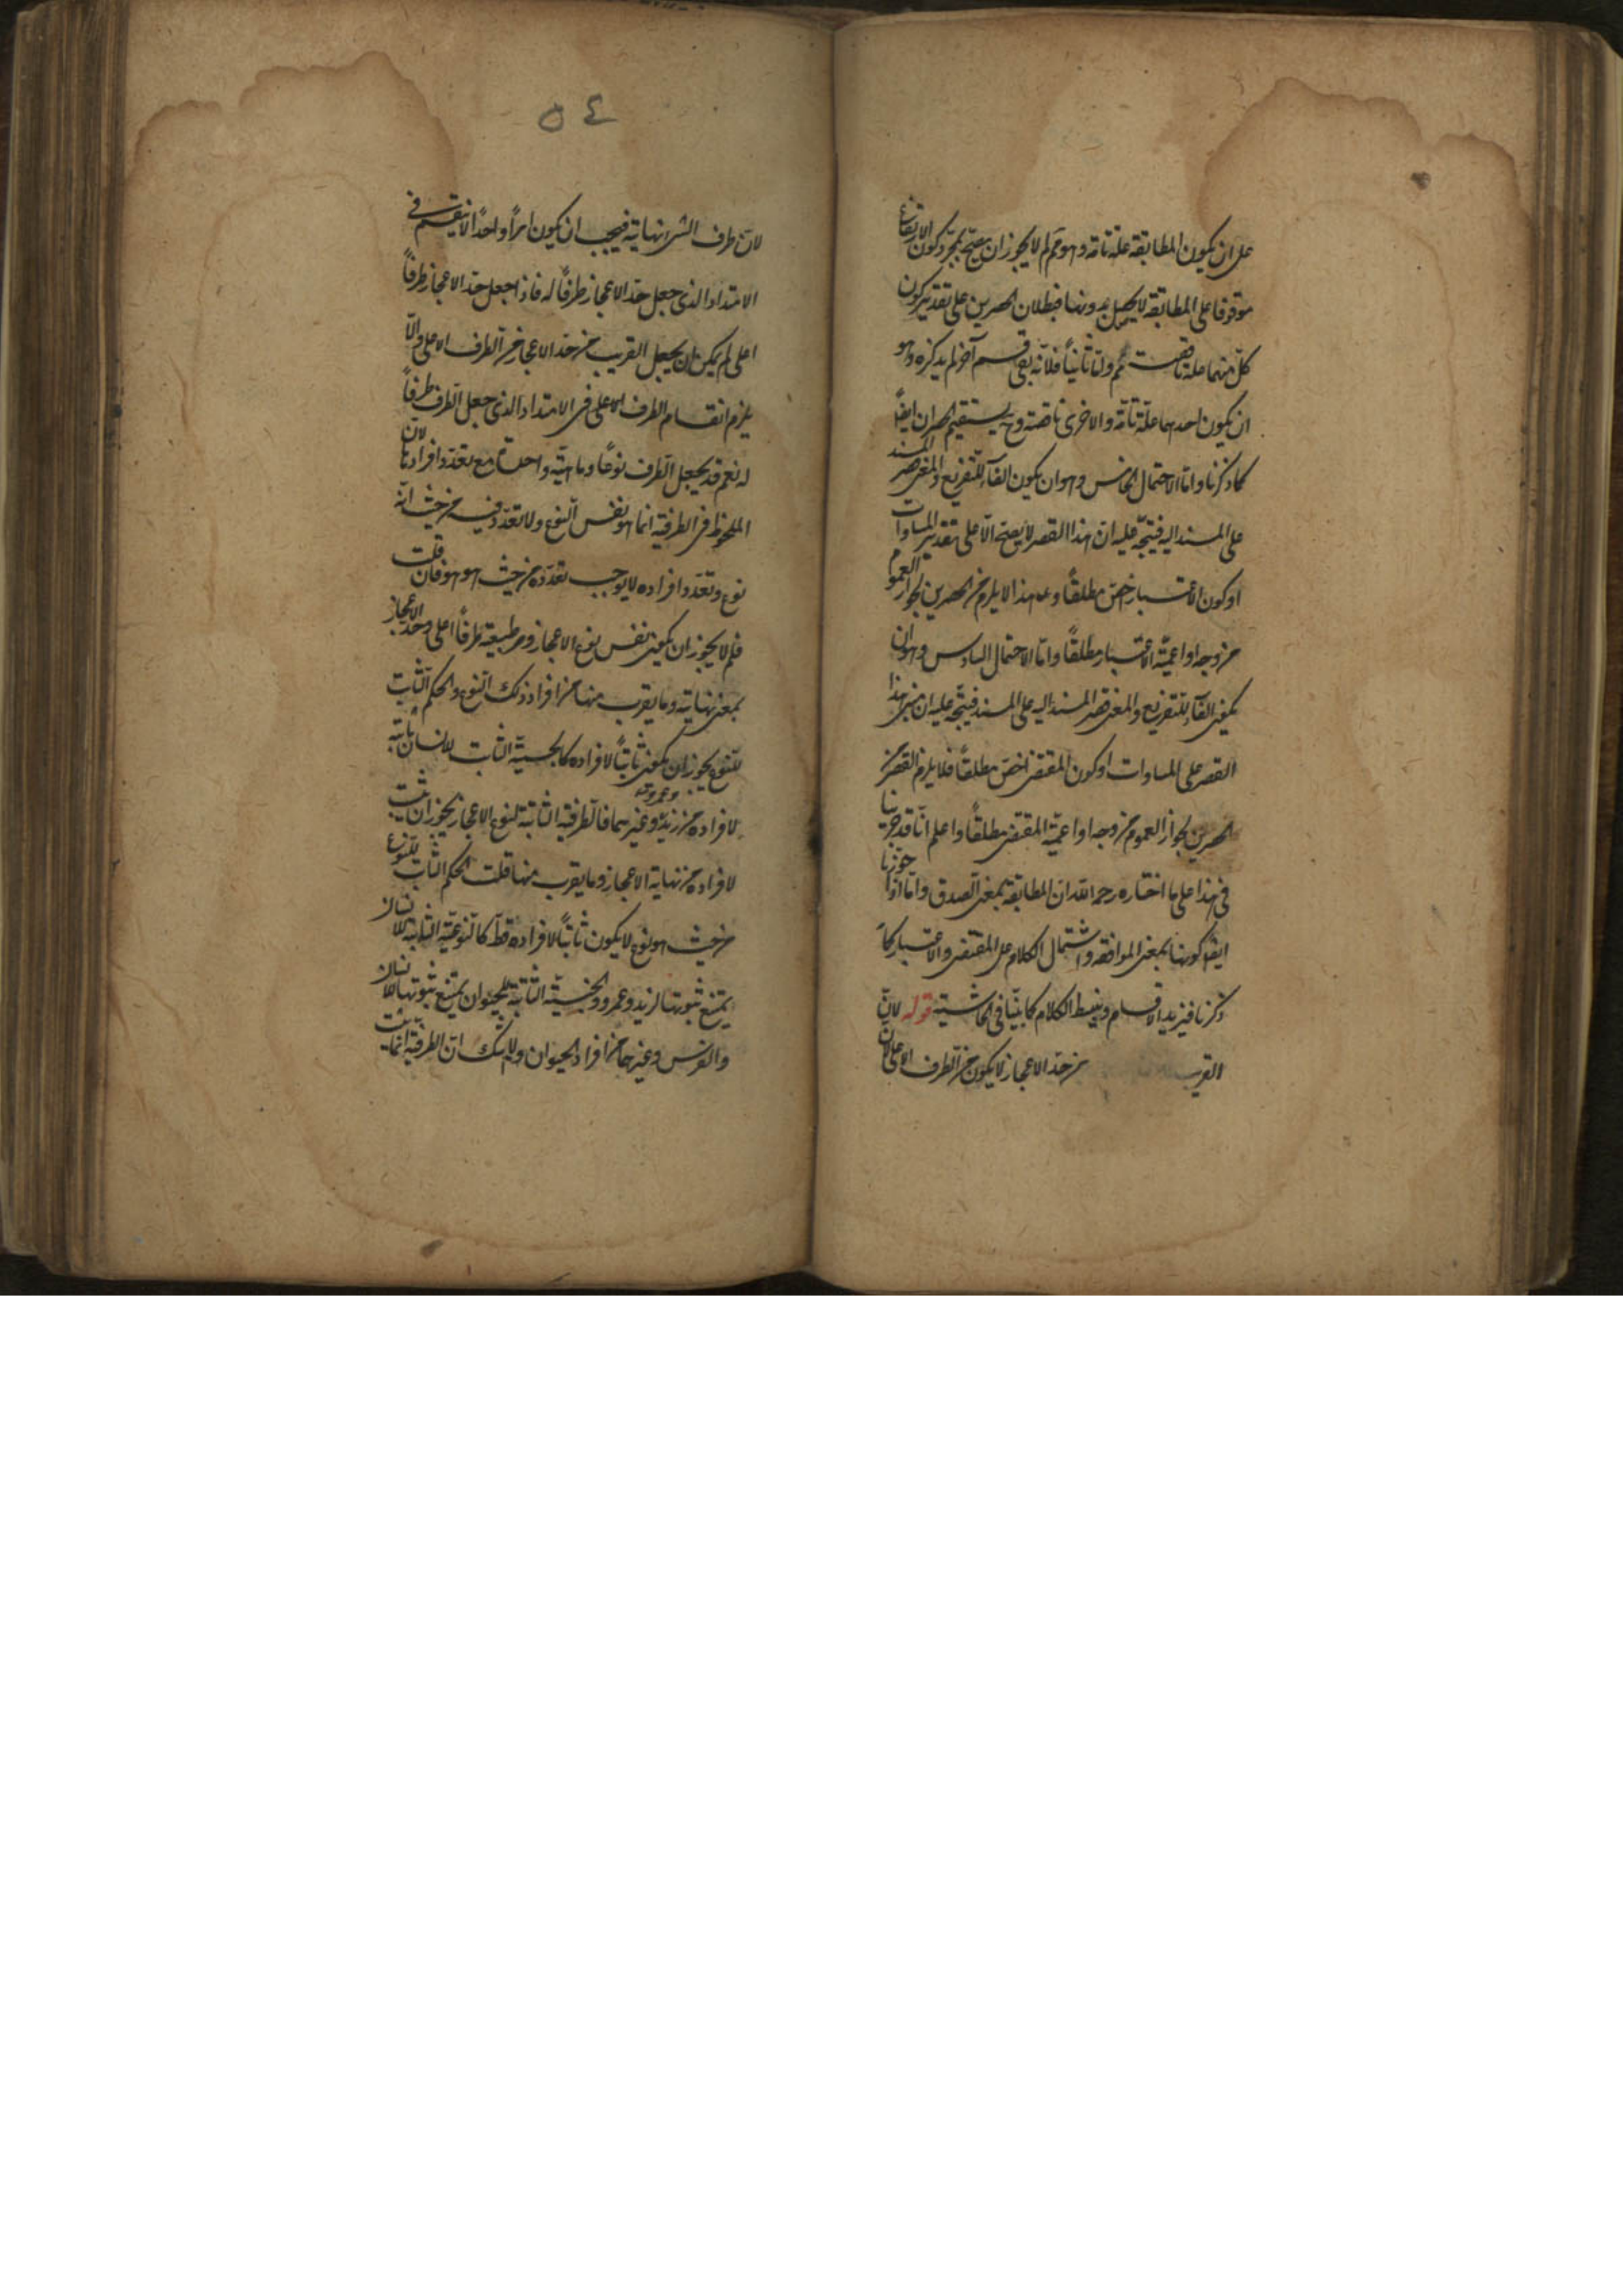 على ان يكون المطابقة علة تامة وهو مم لم لا يجوز ان يصح بمجرد كون الارتفاع
موقوفا على المطابقة لا يحصل بدونها فبطلان الحصرين على تقدير كون
كل منهما علة ناقصة مم واما ثانياً فلانه بقي قسم آخر لم يذكره وهو
ان يكون احدهما علة تامة والاخرى ناقصة وح يستقيم الحصران ايضاً
كما ذكرنا واما الاحتمال الخامس وهو ان يكون الفاء للتفريع والمعنى قصر المسند
على المسند اليه فيتجه عليه ان هذا القصر لا يصح الا على تقدير المساوات
او كون الاعتبار اخص مطلقاً وهذا لا يلزم من الحصرين لجواز العموم
من وجه او اعمية الاعتبار مطلقاً واما الاحتمال السادس وهو ان
يكون الفاء للتفريع والمعنى قصر المسند اليه على المسند فيتجه عليه ان مبنى هذا
القصر على المساوات او كون المقتضى اخص مطلقاً فلا يلزم القصر من
الحصرين لجواز العموم من وجه او اعمية المقتضى مطلقاً واعلم انا قد جرينا
في هذا على ما اختاره رحمه الله ان المطابقة بمعنى الصدق واما اذا جوزنا
ايضا كونها بمعنى الموافقة واشتمال الكلام على المقتضى والاعتبار كما
ذكرنا فيزيد الاقسام وينبسط الكلام كما بينا في الحاشية قوله لان
القريب من حد الاعجاز لا يكون من الطرف الاعلى لان
٥٤
لان طرف الشئ نهايته فيجب ان يكون امراً واحداً لا ينقسم في
الامتداد الذي جعل حد الاعجاز طرفاً له فاذا جعل حد الاعجاز طرفاً
اعلى لم يمكن ان يجعل القريب من حد الاعجاز من الطرف الاعلى والا
يلزم انقسام الطرف الاعلى في الامتداد الذي جعل الطرف طرفاً
له نعم قد يجعل الطرف نوعاً وماهية واحدة مع تعدد افرادها لان
الملحوظ في الطرفية انما هو نفس النوع ولا تعدد فيه من حيث انه
نوع وتعدد افراده لا يوجب تعدده من حيث هو هو فان قلت
فلم لا يجوز ان يكون نفس نوع الاعجاز وطبيعته طرفاً اعلى وحد الاعجاز
بمعنى نهايته وما يقرب منها من افراد ذلك النوع والحكم الثابت
للنوع يجوز ان يكون ثابتاً لافراده كالجسمية الثابت للانسان ثابتة
لافراده من زيد وعمرو وغيرهما فالطرفية الثابتة لنوع الاعجاز يجوز ان يثبت
لافراده من نهاية الاعجاز وما يقرب منها قلت الحكم الثابت للنوع
من حيث هو نوع لا يكون ثابتاً لافراده قط كالنوعية الثابتة للانسان
يمتنع ثبوتها لزيد وعمرو والجنسية الثابتة للحيوان يمتنع ثبوتها للانسان
والفرس وغيرهما من افراد الحيوان ولا شك ان الطرفية انما يثبت